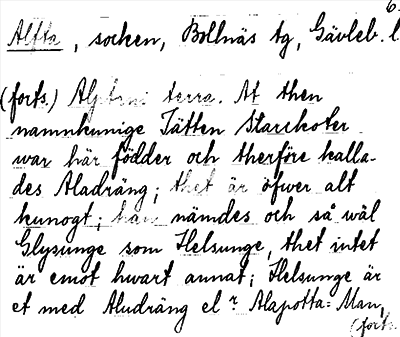 6.
Alfta, socken, Bollnäs tg, Gävleb. l
(forts.) terra. At then
namnkunige Jätten Starckoter
war här födder och therföre kalla-
des Aladräng; thet är öfwer alt
kunogt; han nämdes och så wäl
Glysunge som Helsunge, thet intet
är emot hwart annat; Helsunge är
et med Aludräng el r Alapotta-Man,
(forts.